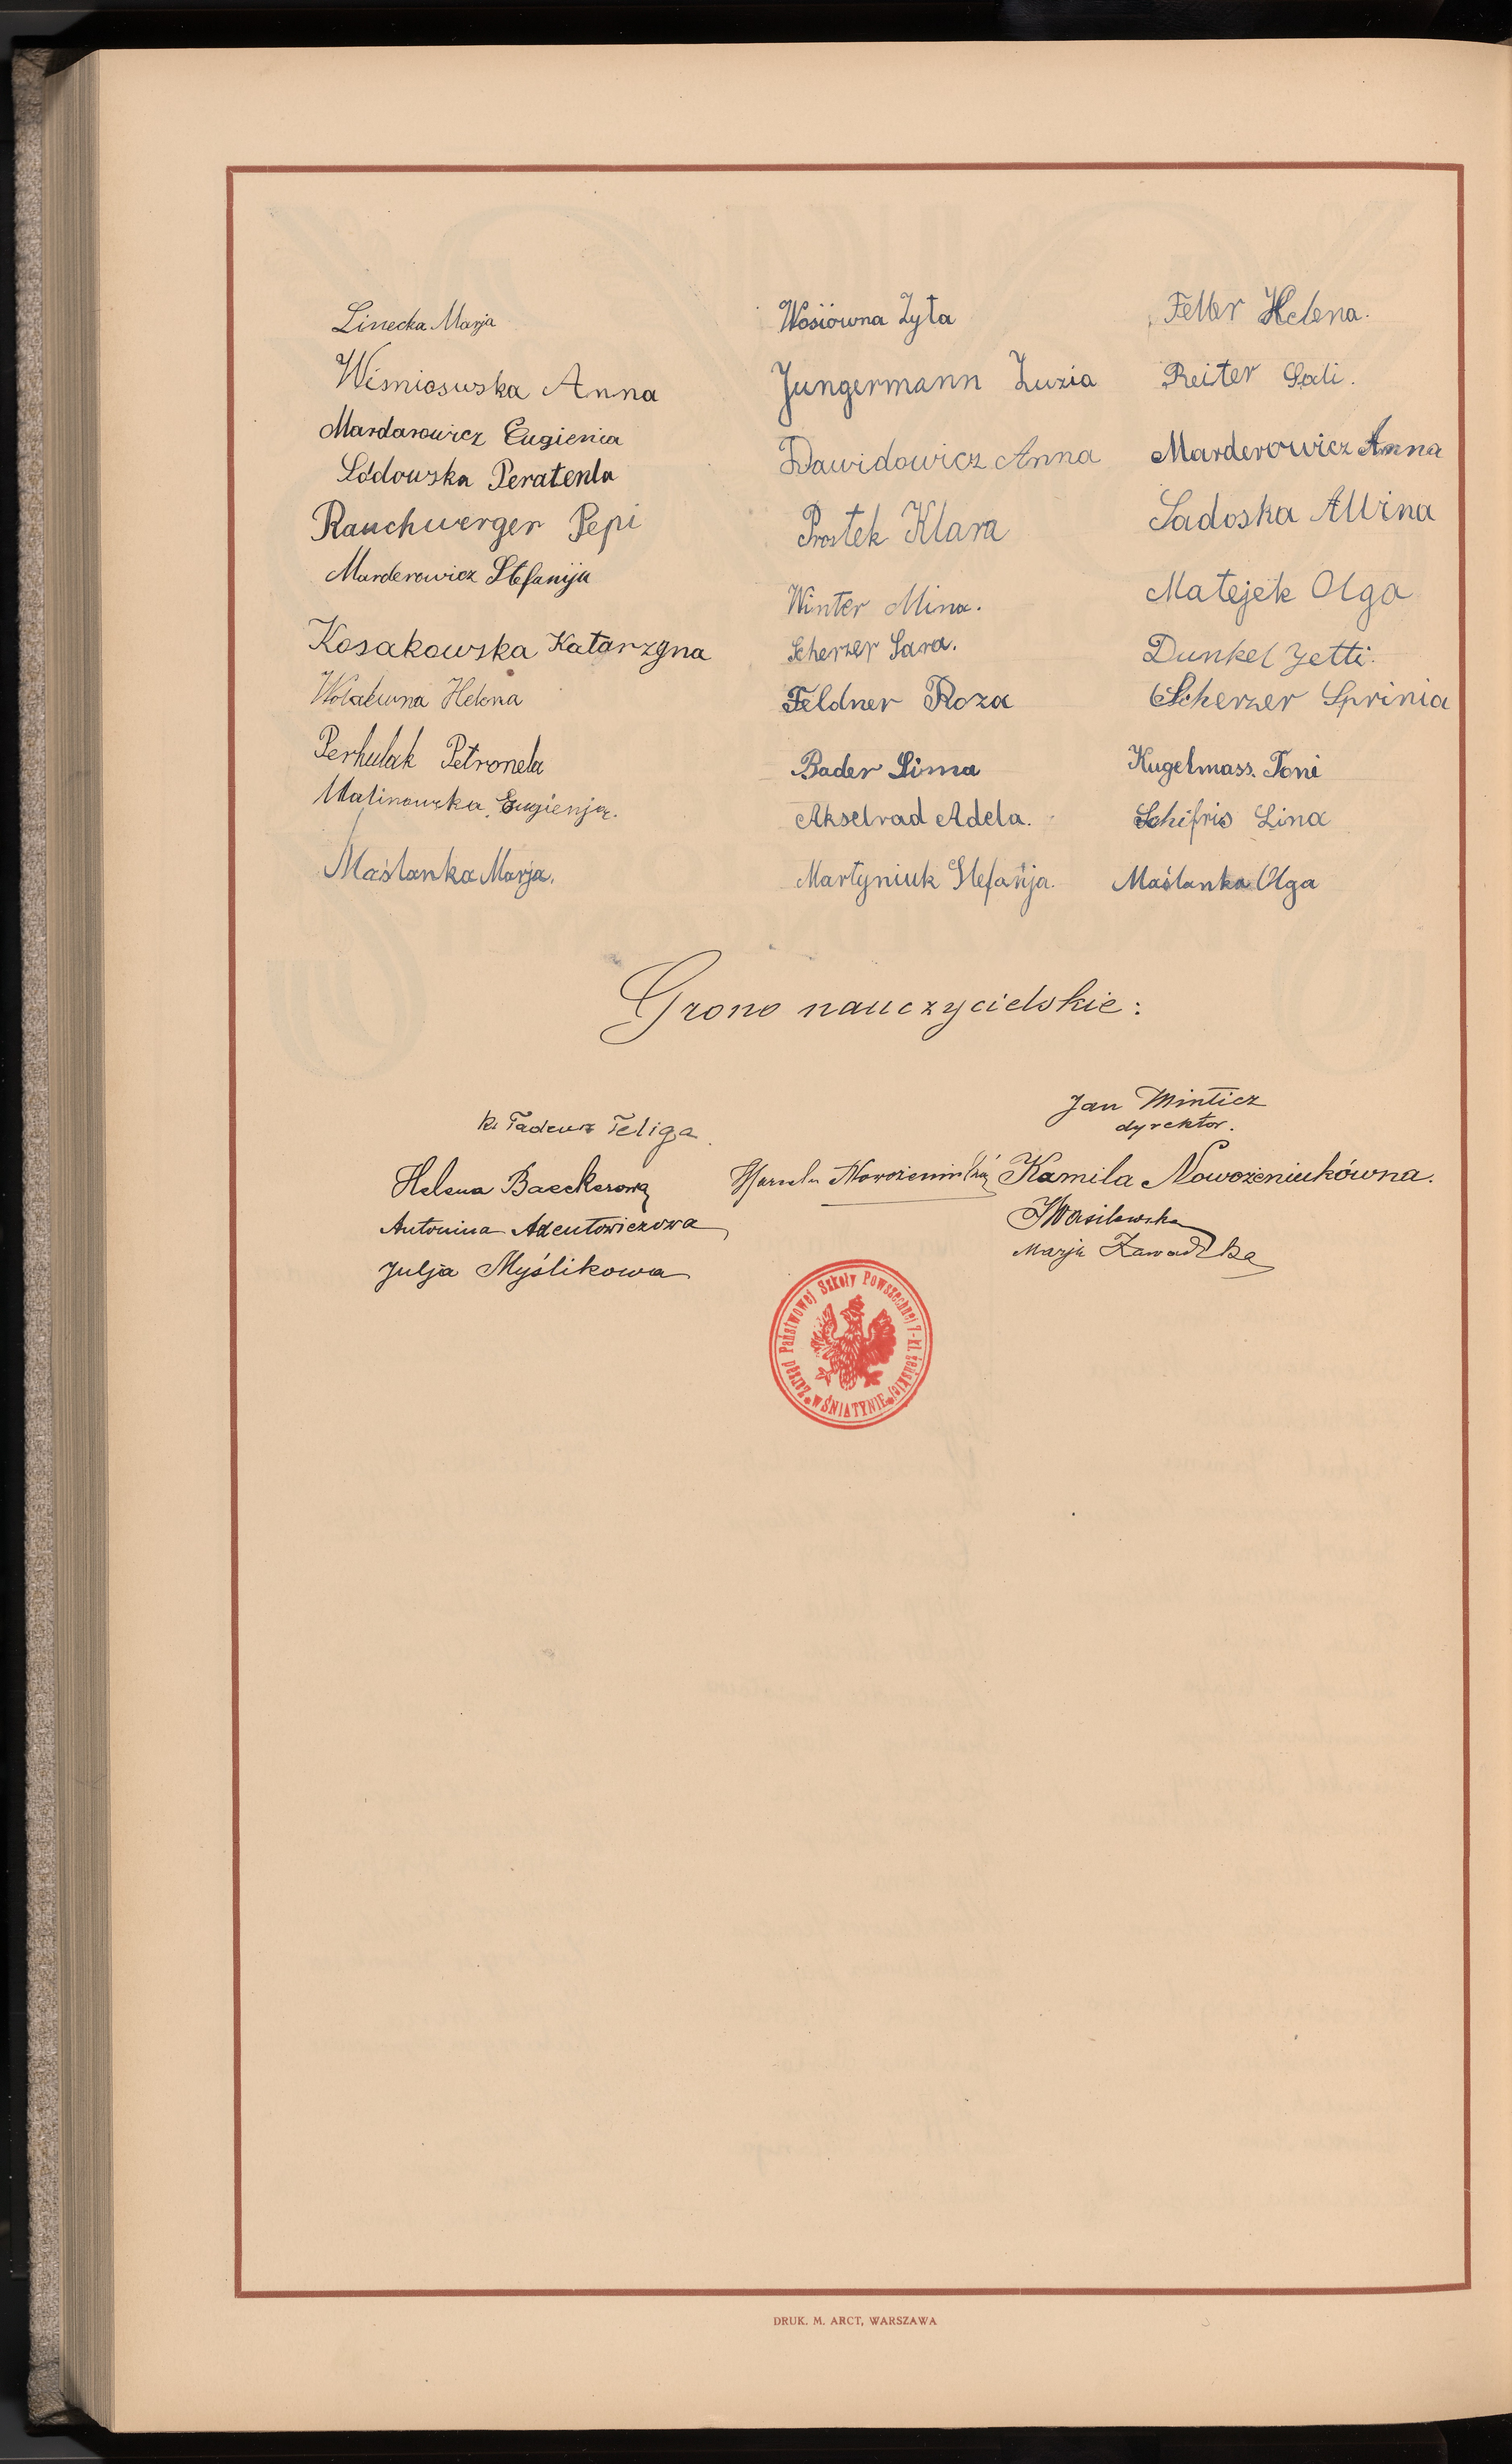 Linecka Marja
Wiśniosuska Anna
Mardarowicz Eugienia
Lodowska
Rauchwerger Pepi
Marderowicz Stefanija
Kosakowska Katarzyna
Helena
Perhulak Petronela
Malinowska Eugienja.
Maślanka Marja.
Wosiówna Zyta
Jungermann Luzia
Dawidowicz Anna
Prostek Klara
Winter Mina.
Scherzer Sara.
Feldner Roza
Bader Sima
Akselrad Adela.
Martyniuk Stefanja.
Feller Helena.
Reiter Sali.
Marderowicz Anna
Sadoska Alvina
Matejek Olga
Dunkel Jetti.
Scherzer Sprinia
Kugelmass. Toni
Schifris Lina
Maślanka Olga
Grono nauczycielskie:
Ks Tadeusz Teliga.
Helena Baeckerowa
Antonina Adentowiczowa
Julja Myślikowa
Jan Minticz
dyrektor.
Kamila Nowożeniukówna.
Wasilewska
Marja Zawadzka
Zarząd Państwowej Szkoły Powszechnej 7-kl. żeńskiej
w ŚNIATYNIE
DRUK. M. ARCT, WARSZAWA